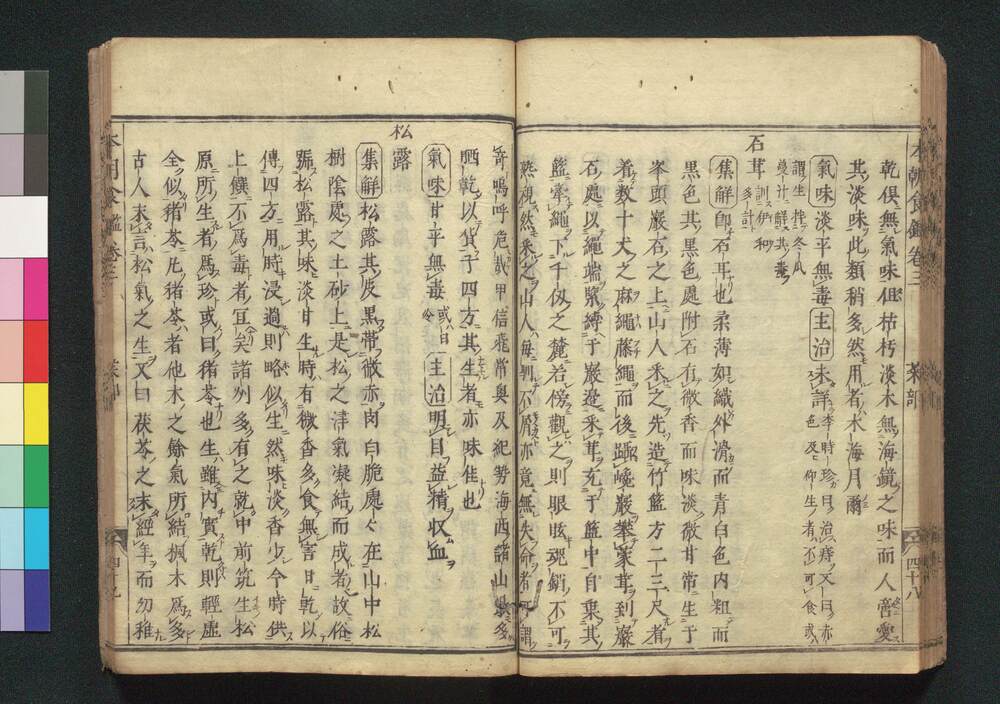 乾倶無氣味但枯朽淡木無海鏡之味而人嗇愛
其淡味此類稍多然用者木海月爾
氣味淡平無毒主治未詳李時珍曰治痔又曰赤色及仰生者不可食或
謂生擣冬瓜蔓汁解其毒
石茸訓伊和多計
集解即石耳也柔薄如織外滑而青白色内粗而
黒色其黒色處附石有微香而味淡微甘常生于
峯頭巖石之上山人采之先造竹籃方二三尺者
着數十丈之麻繩藤繩而後躡巉巖攀蒙茸到巖
石處以繩端縶縛于巖邊采茸充于籃中自乗其
籃牽繩下千仭之麓若傍觀之則眼眩魂銷不可
熟視然采之山人毎判不屑亦竟無失命者可謂
奇嗚呼危哉甲信飛常奥及紀勢海西諸山最多
晒乾以貨于四方其生者亦味佳也
氣味甘平無毒或曰令主治明目益精收血
松露
集解松露其皮黒帶微赤肉白脆處々在山中松
樹陰處之土砂上是松之津氣凝結而成者故俗
號松露其味淡甘生時有微香多食無害日乾以
傳四方用時浸過則略似生然味淡香少今時供
上饌不爲毒者宜矣諸州多有之就中前筑生松
原所生者爲珍或曰猪苓也生雖内實乾則輕虚
全似猪苓凡猪苓者他木之餘氣所結楓木爲多
古人未言松氣之生又曰茯苓之未經年而勿稚
本朝食鑑卷三
菜部
四十八
四十九